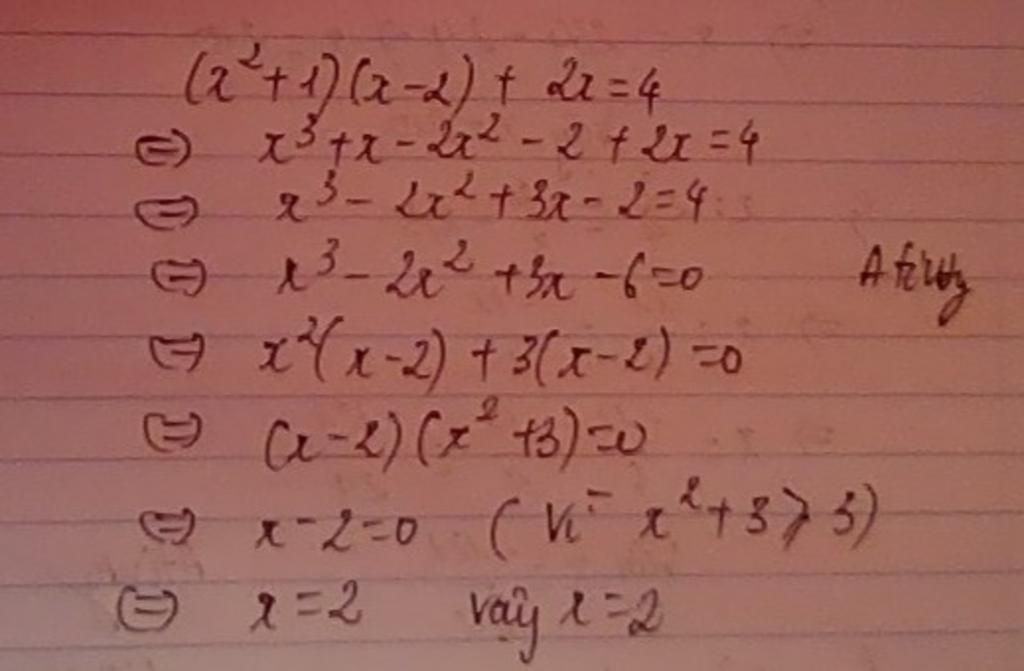 (x²+1)(x-2) + 2x = 4
⇔ x³ + x - 2x² - 2 + 2x = 4
⇔ x³ - 2x² + 3x - 2 = 4
⇔ x³ - 2x² + 3x - 6 = 0
⇔ x²(x-2) + 3(x-2) = 0
⇔ (x-2)(x²+3) = 0
⇔ x - 2 = 0 ( Vì x² + 3 ≥ 3)
⇔ x = 2 vậy x = 2